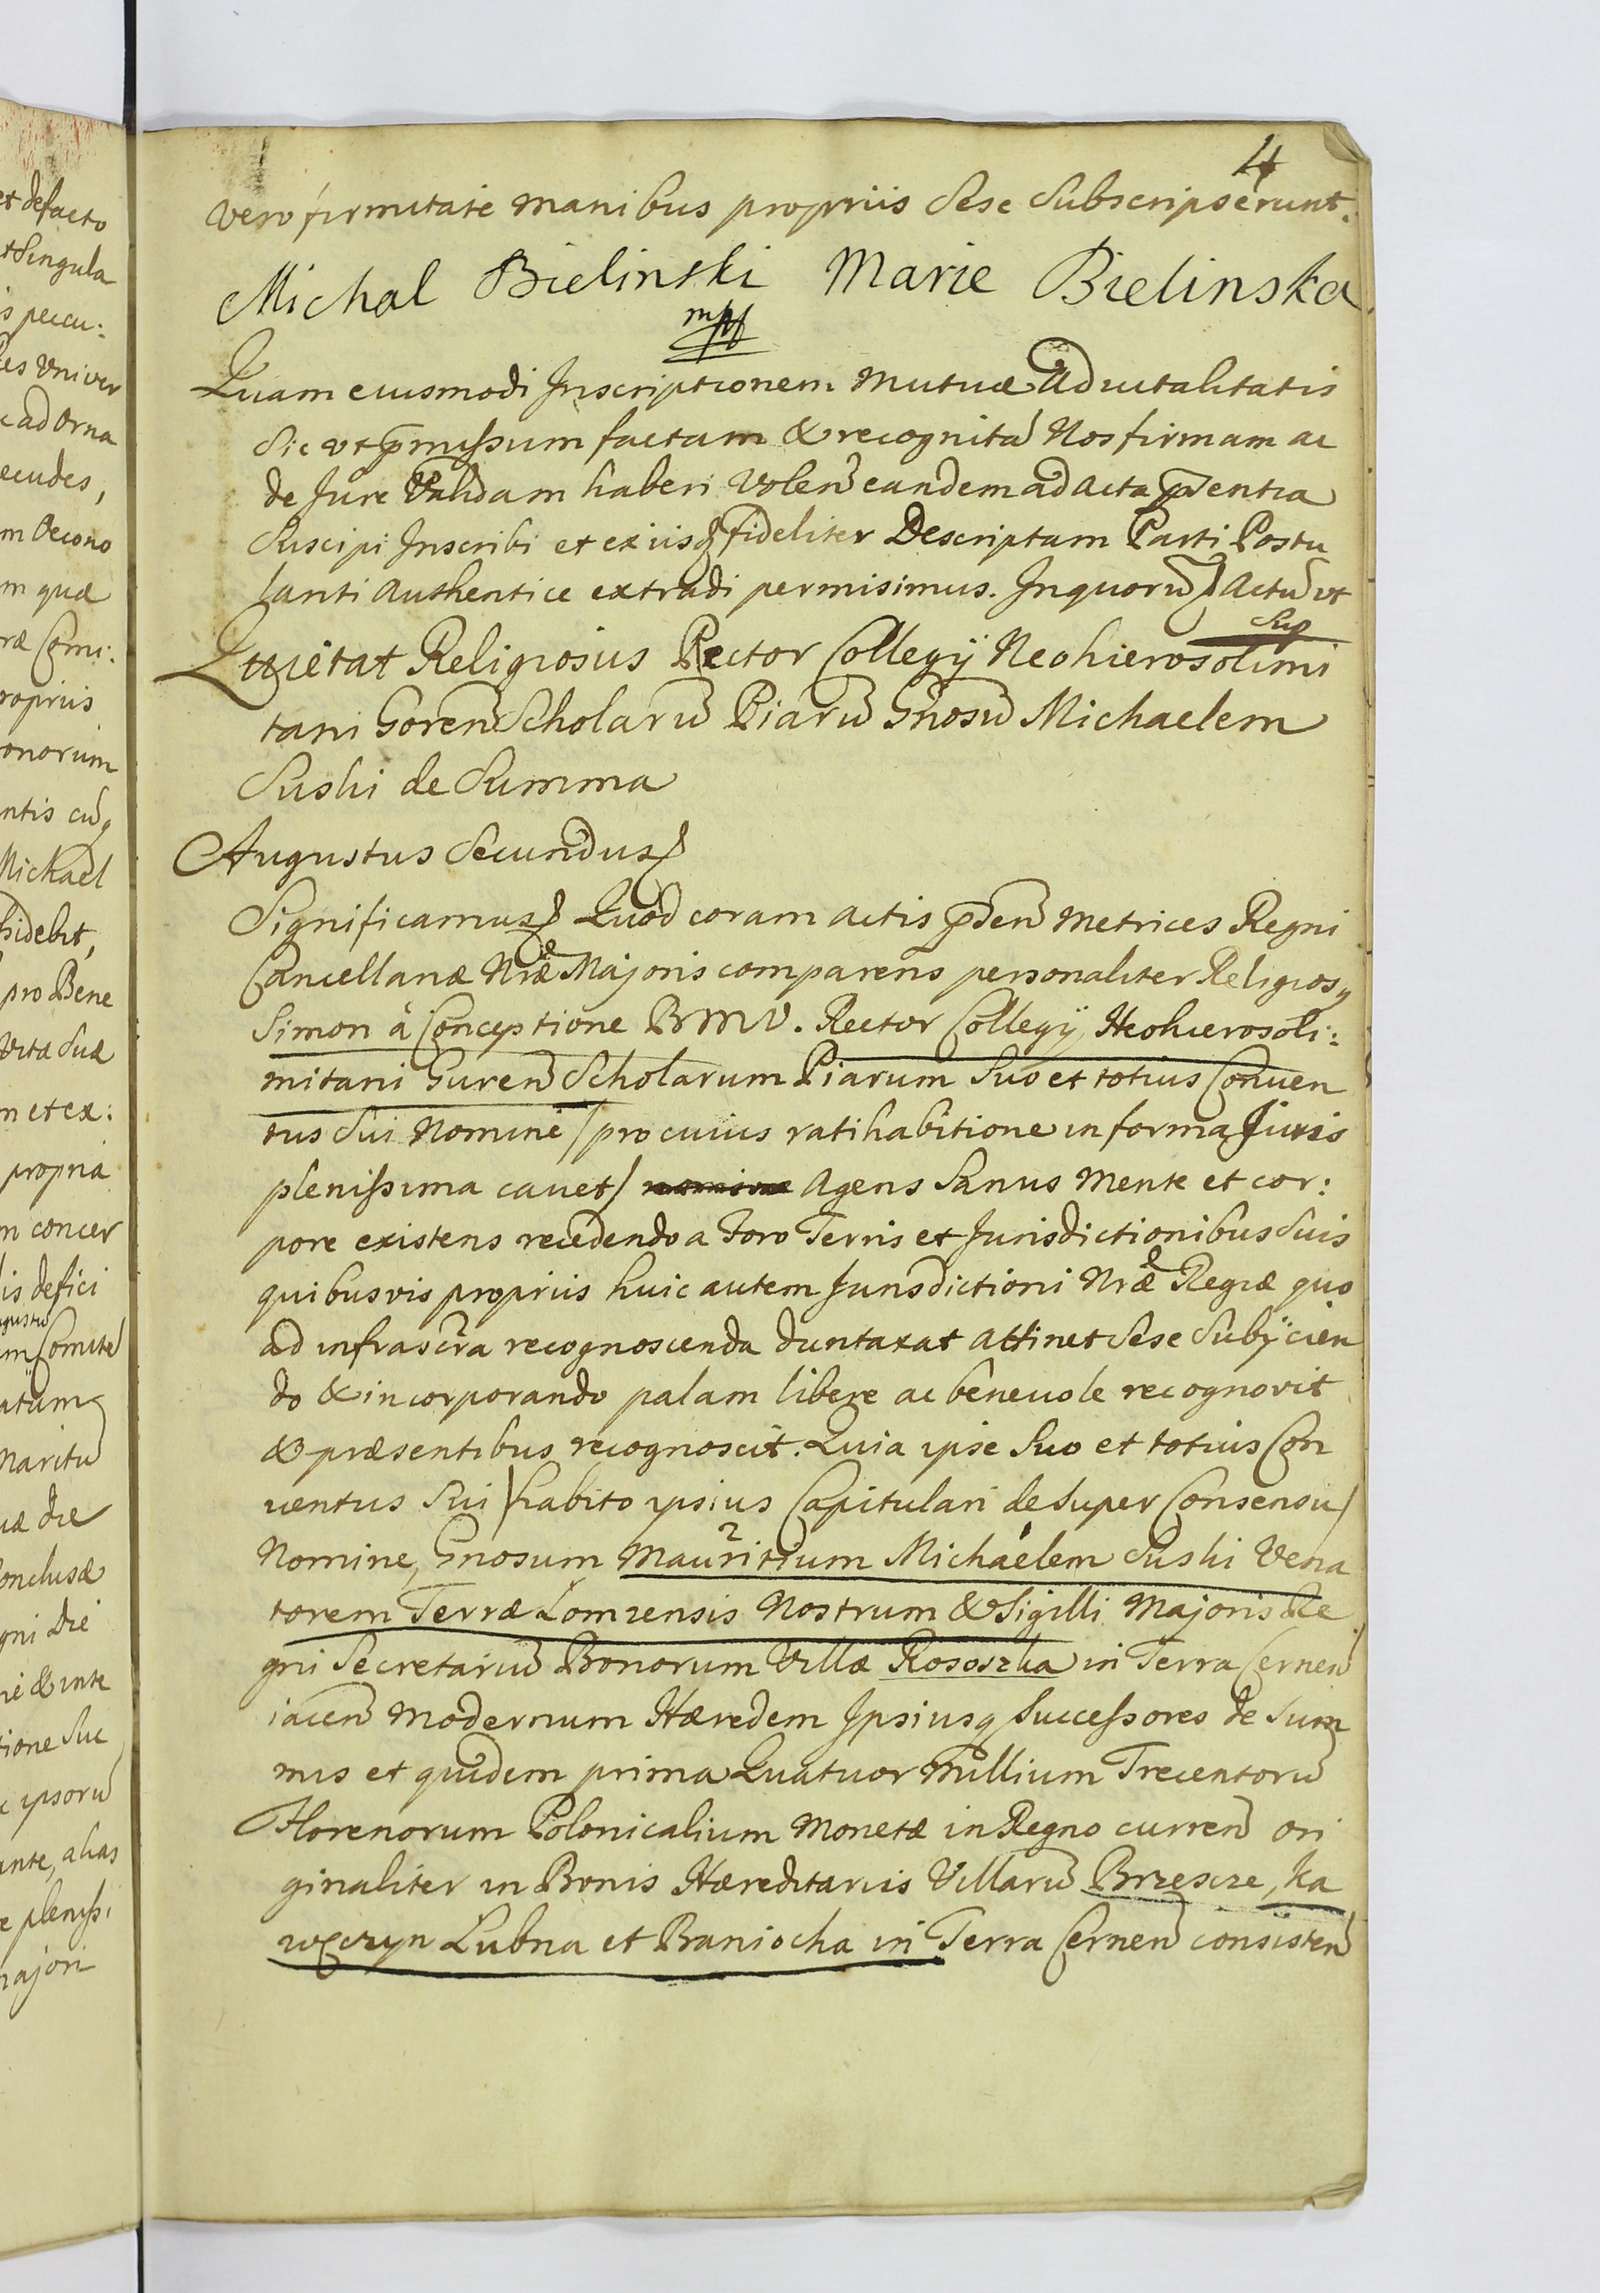 et defacto
et Singula
s peccu:
les Univer
c ad Orna
ecudes,
m Oecono
m quæ
ræ Comi:
propriis
onorum
ntis cuq
Michael
sidebit,
pro Bene
Vita Suæ
n et ex:
propria
m concer
is defici
gustu
m Comite
atum
maritu
uæ die
onclusæ
gni Die
ne & inte
tione Suc
c ipsoru
ante, alias
e plenissi
majori
4
vero firmitate manibus propriis Sese Subscripserunt.
Michal Bielinski Marie Bielinska
mp
Quam eiusmodi Inscriptionem Mutuæ Advitalitatis
Sic vt pmissum factam & recognita Nos firmam ac
de Jure Validam haberi Volen eandem ad Acta psentia
Suscipi Inscribi et ex iisq fideliter Descriptam Parti Postu
lanti Authentice extradi permisimus. In quoru Actu vt
Sup
Quietat Religiosus Rector Collegÿ Neohierosolimi
tani Goren Scholaru Piaru Gnosu Michaelem
Suski de Summa
Augustus Secundus
Significamus Quod coram Actis psen Metrices Regni
Cancellariæ Nræ Majoris comparens personaliter Religiosq
Simon à Conceptione B M V. Rector Collegÿ Neohierosoli:
mitani Guren Scholarum Piarum Suo et totius Conuen
tus Sui Nomine / pro cuius ratihabitione in forma Juris
plenissima cauet / Agens Sanus Mente et cor:
pore existens recedendo a Foro Terris et Jurisdictionibus Suis
quibusvis propriis huic autem Jurisdictioni Nræ Regiæ quo
ad infrascra recognoscenda duntaxat attinet Sese Subÿcien
do & incorporando palam libere ac beneuole recognovit
& præsentibus recognoscit. Quia ipse Suo et totius Con
uentus Sui / habito ipsius Capitulari desuper Consensu /
Nomine, Gnosum Mauritium Michaelem Suski Vena
torem Terræ Lomzensis Nostrum & Sigilli Majoris Re
gni Secretariu Bonorum Villæ Rososzka in Terra Cernen
iacen Modernum Hæredem Ipsiusq Successores de Sum
mis et quidem prima Quatuor Millium Trecentoru
Florenorum Polonicalium Monetæ in Regno curren ori
ginaliter in Bonis Hæreditariis Villaru Brzescze, Ka
węczyn Lubna et Baniocha in Terra Cernen consisten